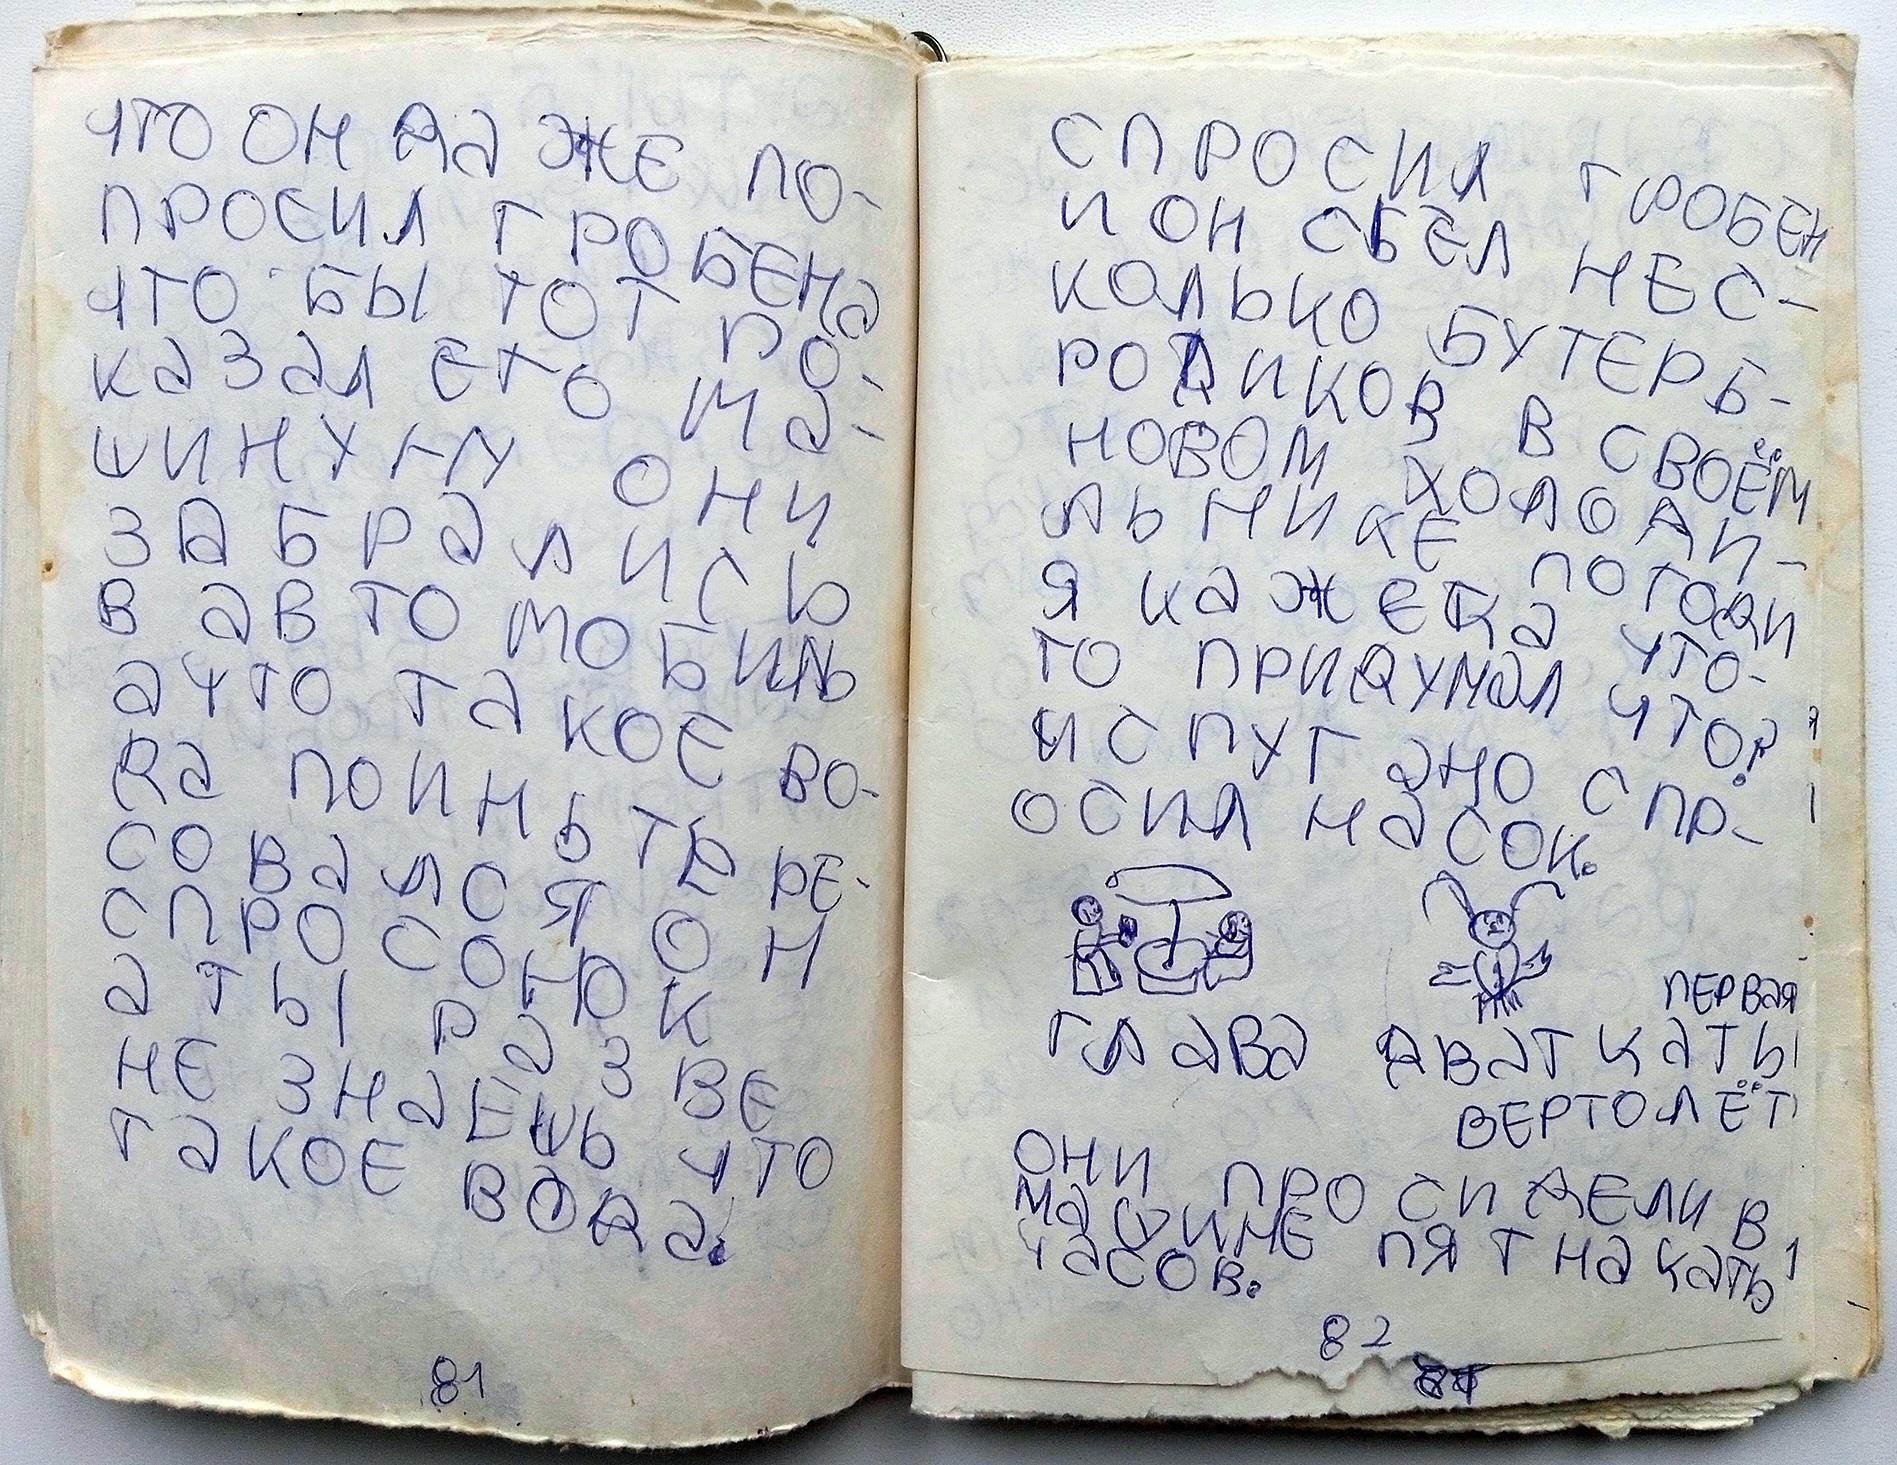 ЧТО ОН ДАЖЕ ПО-
ПРОСИЛ ГРОБЕНА
ЧТО БЫ ТОТ ПО-
КАЗАЛ ЕГО МА-
ШИНУ НУ ОНИ
ЗАБРАЛИСЬ
В АВТОМОБИЛЬ
А ЧТО ТАКОЕ ВО-
ДА ПОИНЬТЕРЕ-
СОВАЛСЯ ОН
СПРОСОНОК
А ТЫ РАЗВЕ
НЕ ЗНАЕШЬ ЧТО
ТАКОЕ ВОДА.
81
СПРОСИЛ ГРОБЕН
И ОН СЬЕЛ НЕС-
КОЛЬКО БУТЕРБ-
РОДИКОВ В СВОЁМ
НОВОМ ХОЛОДИ-
ЛЬНИКЕ ПОГОДИ
Я КАЖЕТЦА ЧТО-
ТО ПРИДУМАЛ ЧТО?
ИСПУГАНО СПР-
ОСИЛ НАСОК.
ПЕРВАЯ
ГЛАВА ДВАТКАТЫ
ВЕРТОЛЁТ
ОНИ ПРОСИДЕЛИ В
МАШИНЕ ПЯТНАКАТЬ
ЧАСОВ.
82